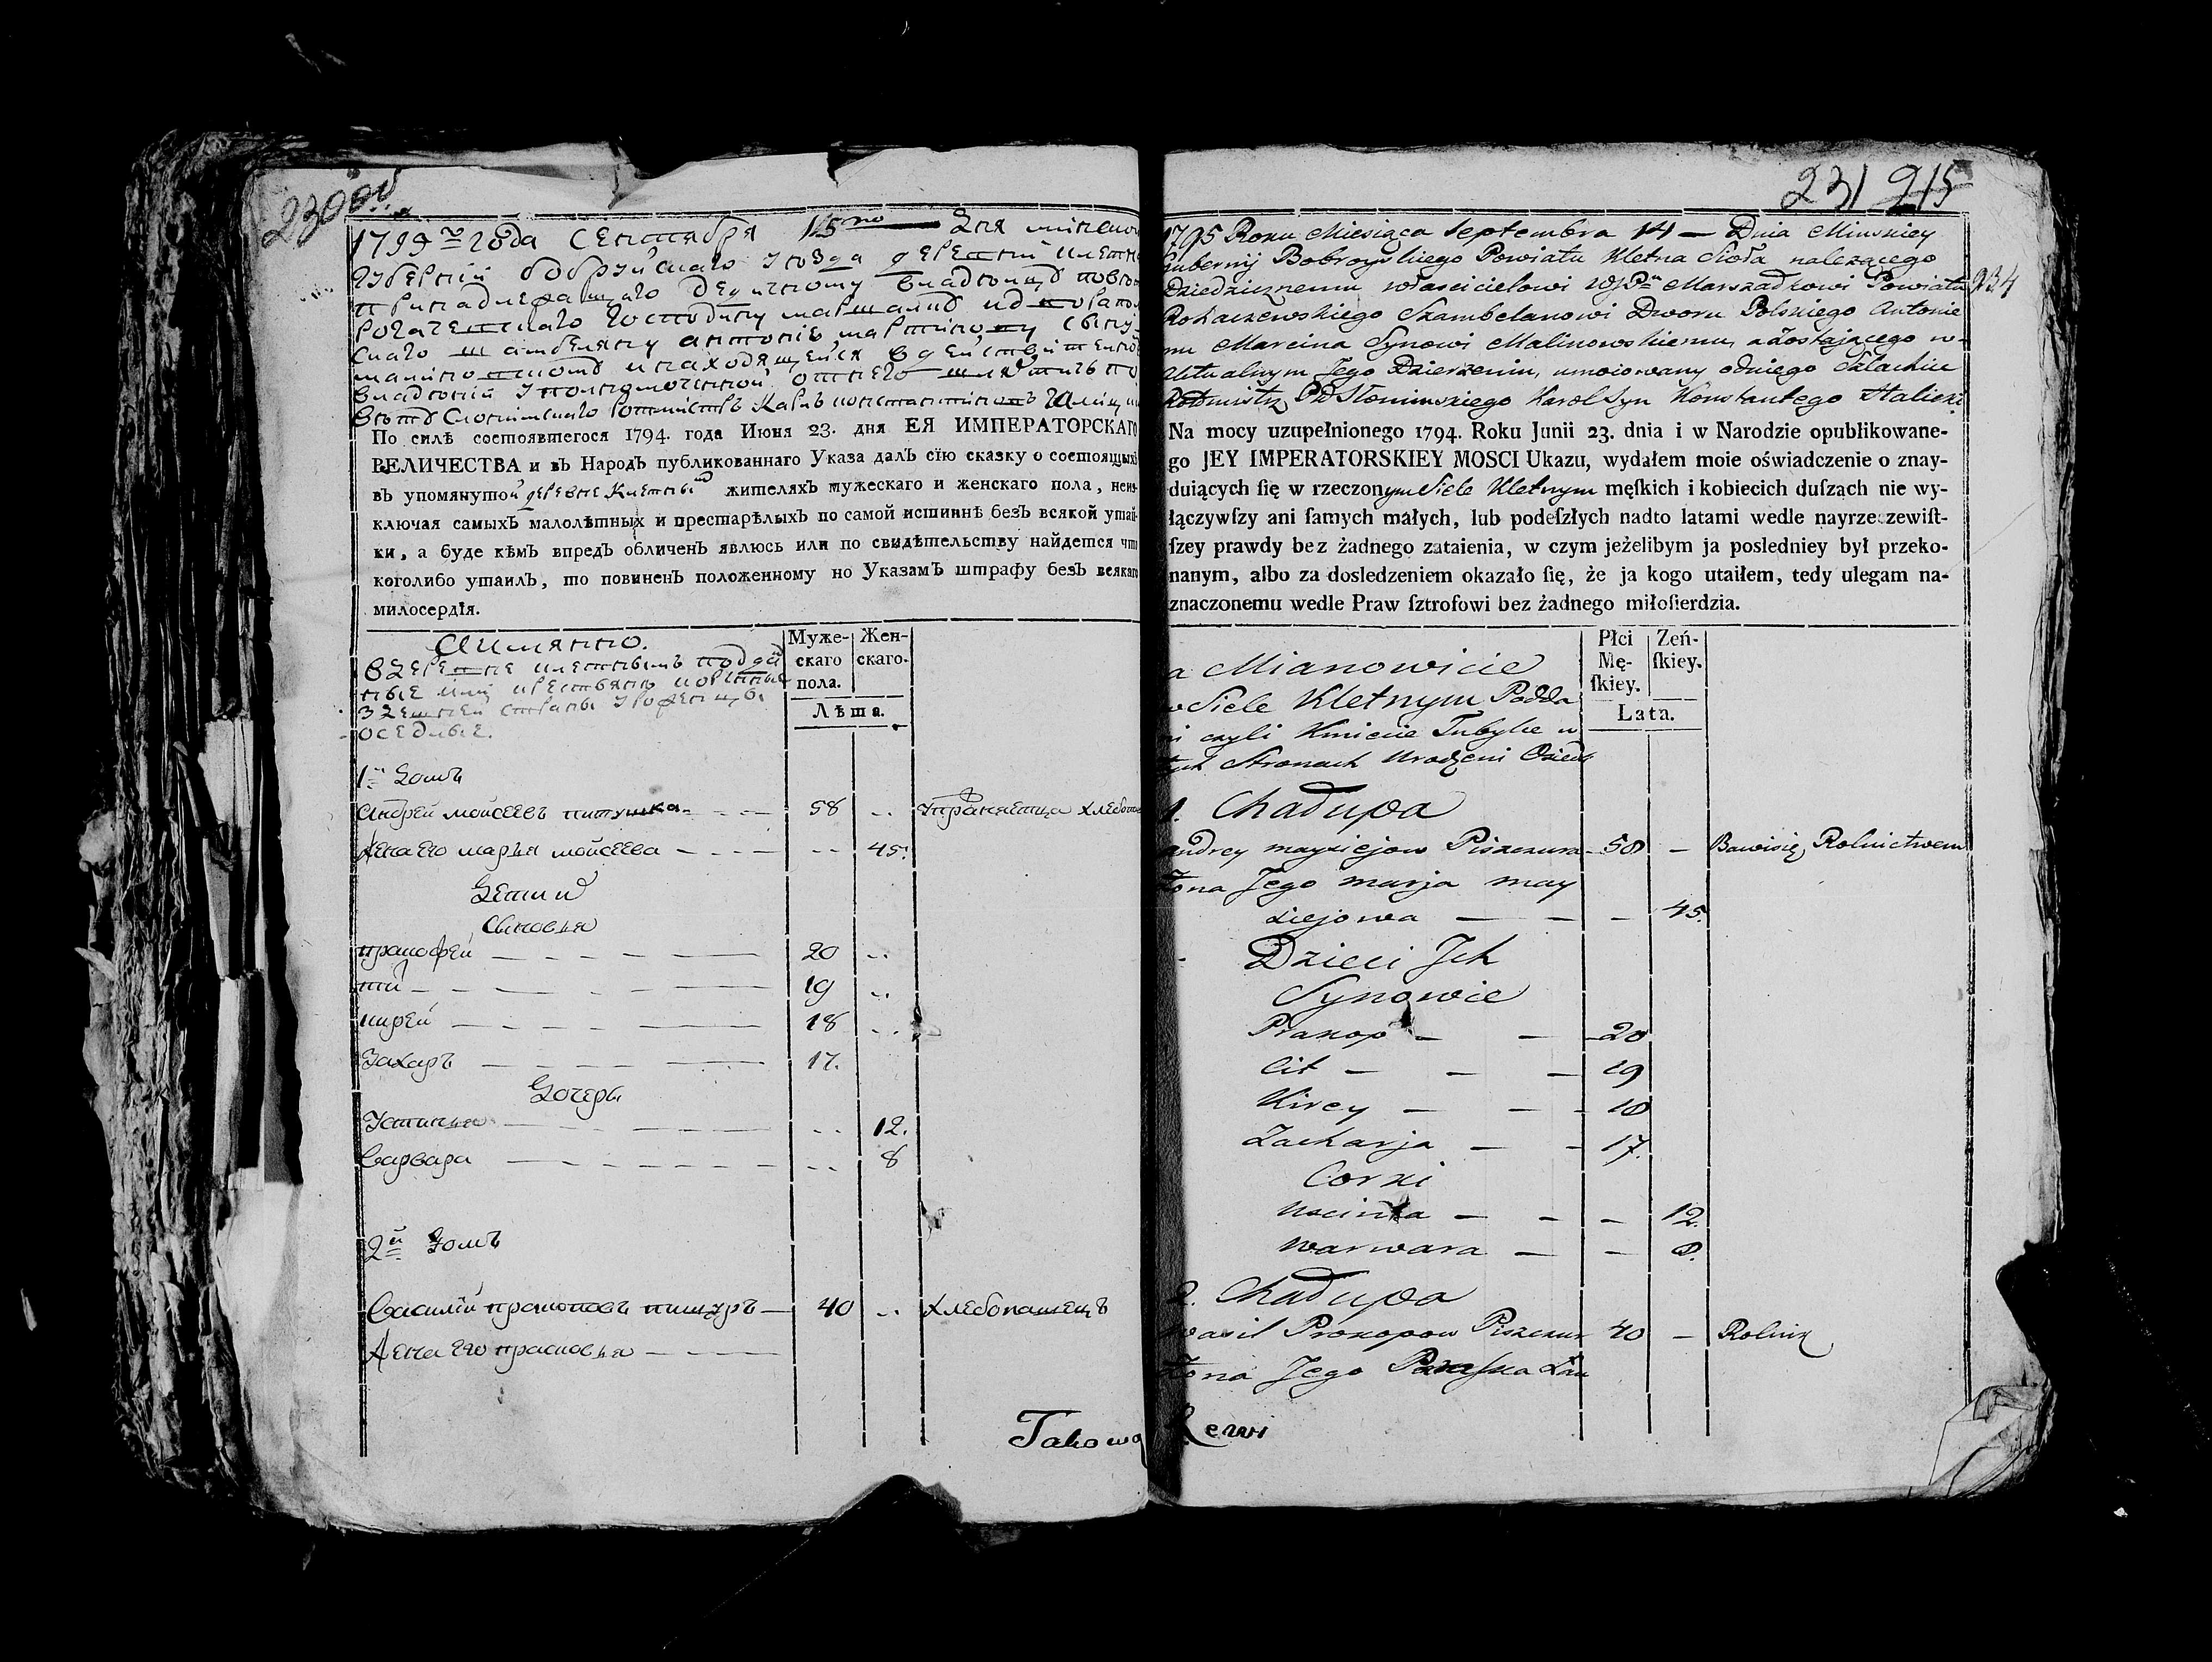 230 об
1795го года Сентября 15го Дня минской
губерний бобруйскаго уезда деревний клетнь
принадлежащаго дедичному владельцу повета
рогачевскаго господину маршалку
скаго шамбеляну антонию мартинову сыну
малиновскому и находящейся в действительном
владений уполномоченной от него шляхтичь
Слонимскаго ротмистръ Карлъ константиновъ
По силѣ состоявшегося 1794. года Июня 23. дня ЕЯ ИМПЕРАТОРСКАГО
ВЕЛИЧЕСТВА и въ Народъ публикованнаго Указа далъ сїю сказку о состоящихъ
въ упомянутой деревне Клетный жителяхъ мужескаго и женскаго пола, неис-
ключая самыхъ малолѣтныхъ и престарѣлыхъ по самой истиннѣ безъ всякой утай-
ки, а буде кѣмъ впредъ обличенъ явлюсь или по свидѣтельству найдется что
коголибо утаилъ, то повиненъ положенному по Указамъ штрафу безъ всякаго
милосердїя.
Аимянно.
В деревне клетныхъ поддан
ные или крестьяне коренные
здешней страны уроженцы
оседлые.
Муже-
скаго
пола.
Жен-
скаго.
Лѣта.
1й Домъ
Андрей мойсеевъ пищушка - - - 58 .. упражнется хлебопа
Жена его марья мойсеева - - - -- 45.
Дети их
Сыновья
пракофей — — — 20 ..
тит — — — 19 ..
кирей — — — 18 ..
Захаръ — — — 17.
Дочери
Устинья — — — .. 12.
Варвара — — — .. 8
2й Домъ
Василий пракоповъ пищуръ — 40 .. хлебопашецъ
Жена его прасковья — — —
Takową
231 215
234
1795 Roku Miesiąca Septembra 14 — Dnia Minskiey
Gubernij Bobroyskiego Powiatu Kletna Sioła należącego
Dziedzicznemu właścicielowi WJPu Marszadkowi Powiatu
Rohaczewskiego Szambelanowi Dworu Polskiego Antonie
mu Marcina Synowi Malinowskiemu, a zostającego w
aktualnym Jego Dzierżeniu, umocowany odniego Szlachcic
Rotmistrz Pttu Słonimskiego Karol Syn Konstantego Halicki
Na mocy uzupełnionego 1794. Roku Junii 23. dnia i w Narodzie opublikowane-
go JEY IMPERATORSKIEY MOSCI Ukazu, wydałem moie oświadczenie o znay-
duiących ſię w rzeczonym Siele Kletnym męſkich i kobiecich duſzach nie wy-
łączywſzy ani ſamych małych, lub podeſzłych nadto latami wedle nayrzeczewiſt-
ſzey prawdy bez żadnego zataienia, w czym jeżelibym ja posledniey był przeko-
nanym, albo za dosledzeniem okazało ſię, że ja kogo utaiłem, tedy ulegam na-
znaczonemu wedle Praw ſztrofowi bez żadnego miłoſierdzia.
a Mianowicie
w Siele Kletnym Podda
ni czyli Kmiecie Tubylce w
tych Stronach Urodzeni Osiedli
Płci
Mę-
ſkiey.
Zeń-
ſkiey.
Lata.
1. Chadupa
andrey mayziejow Piszczura - 58 — Bawi się Rolnictwem
Żona Jego marja may
ziejowa — — — 45.
Dzieci Jch
Synowie
Prakop — — 20
Cit — — — 19
Kirey — — - 18
Zacharja — - 17.
Corki
Uscinia — — — 12.
Warwara — — 8.
2. Chadupa
Wasil Prokopow Piszczur 40 — Rolnik
Żona Jego Paraska
Rewi